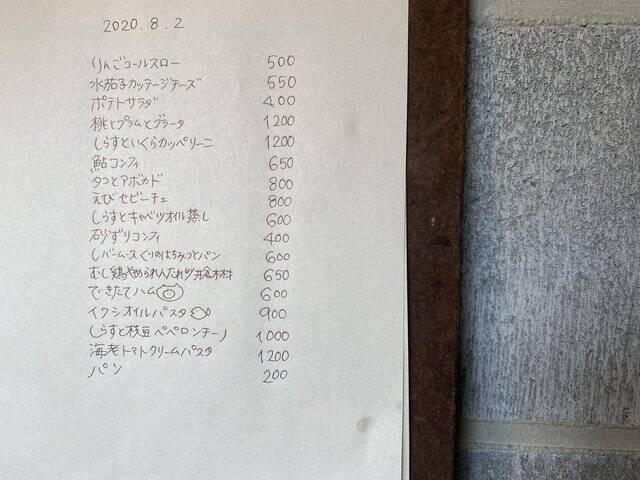 2020.8.2
りんごコールスロー 500
水茄子カッテージチーズ 550
ポテトサラダ 400
桃とプラムとブラータ 1200
しらすといくらカッペリーニ 1200
鮎コンフィ 650
タコとアボカド 800
えびセビーチェ 800
しらすとキャベツオイル蒸し 600
砂ずりコンフィ 400
レバームースくりのはちみつとパン 600
むし鶏やめられんたれ 650
できたてハム 600
イワシオイルパスタ 900
しらすと枝豆ペペロンチーノ 1000
海老トマトクリームパスタ 1200
パン 200